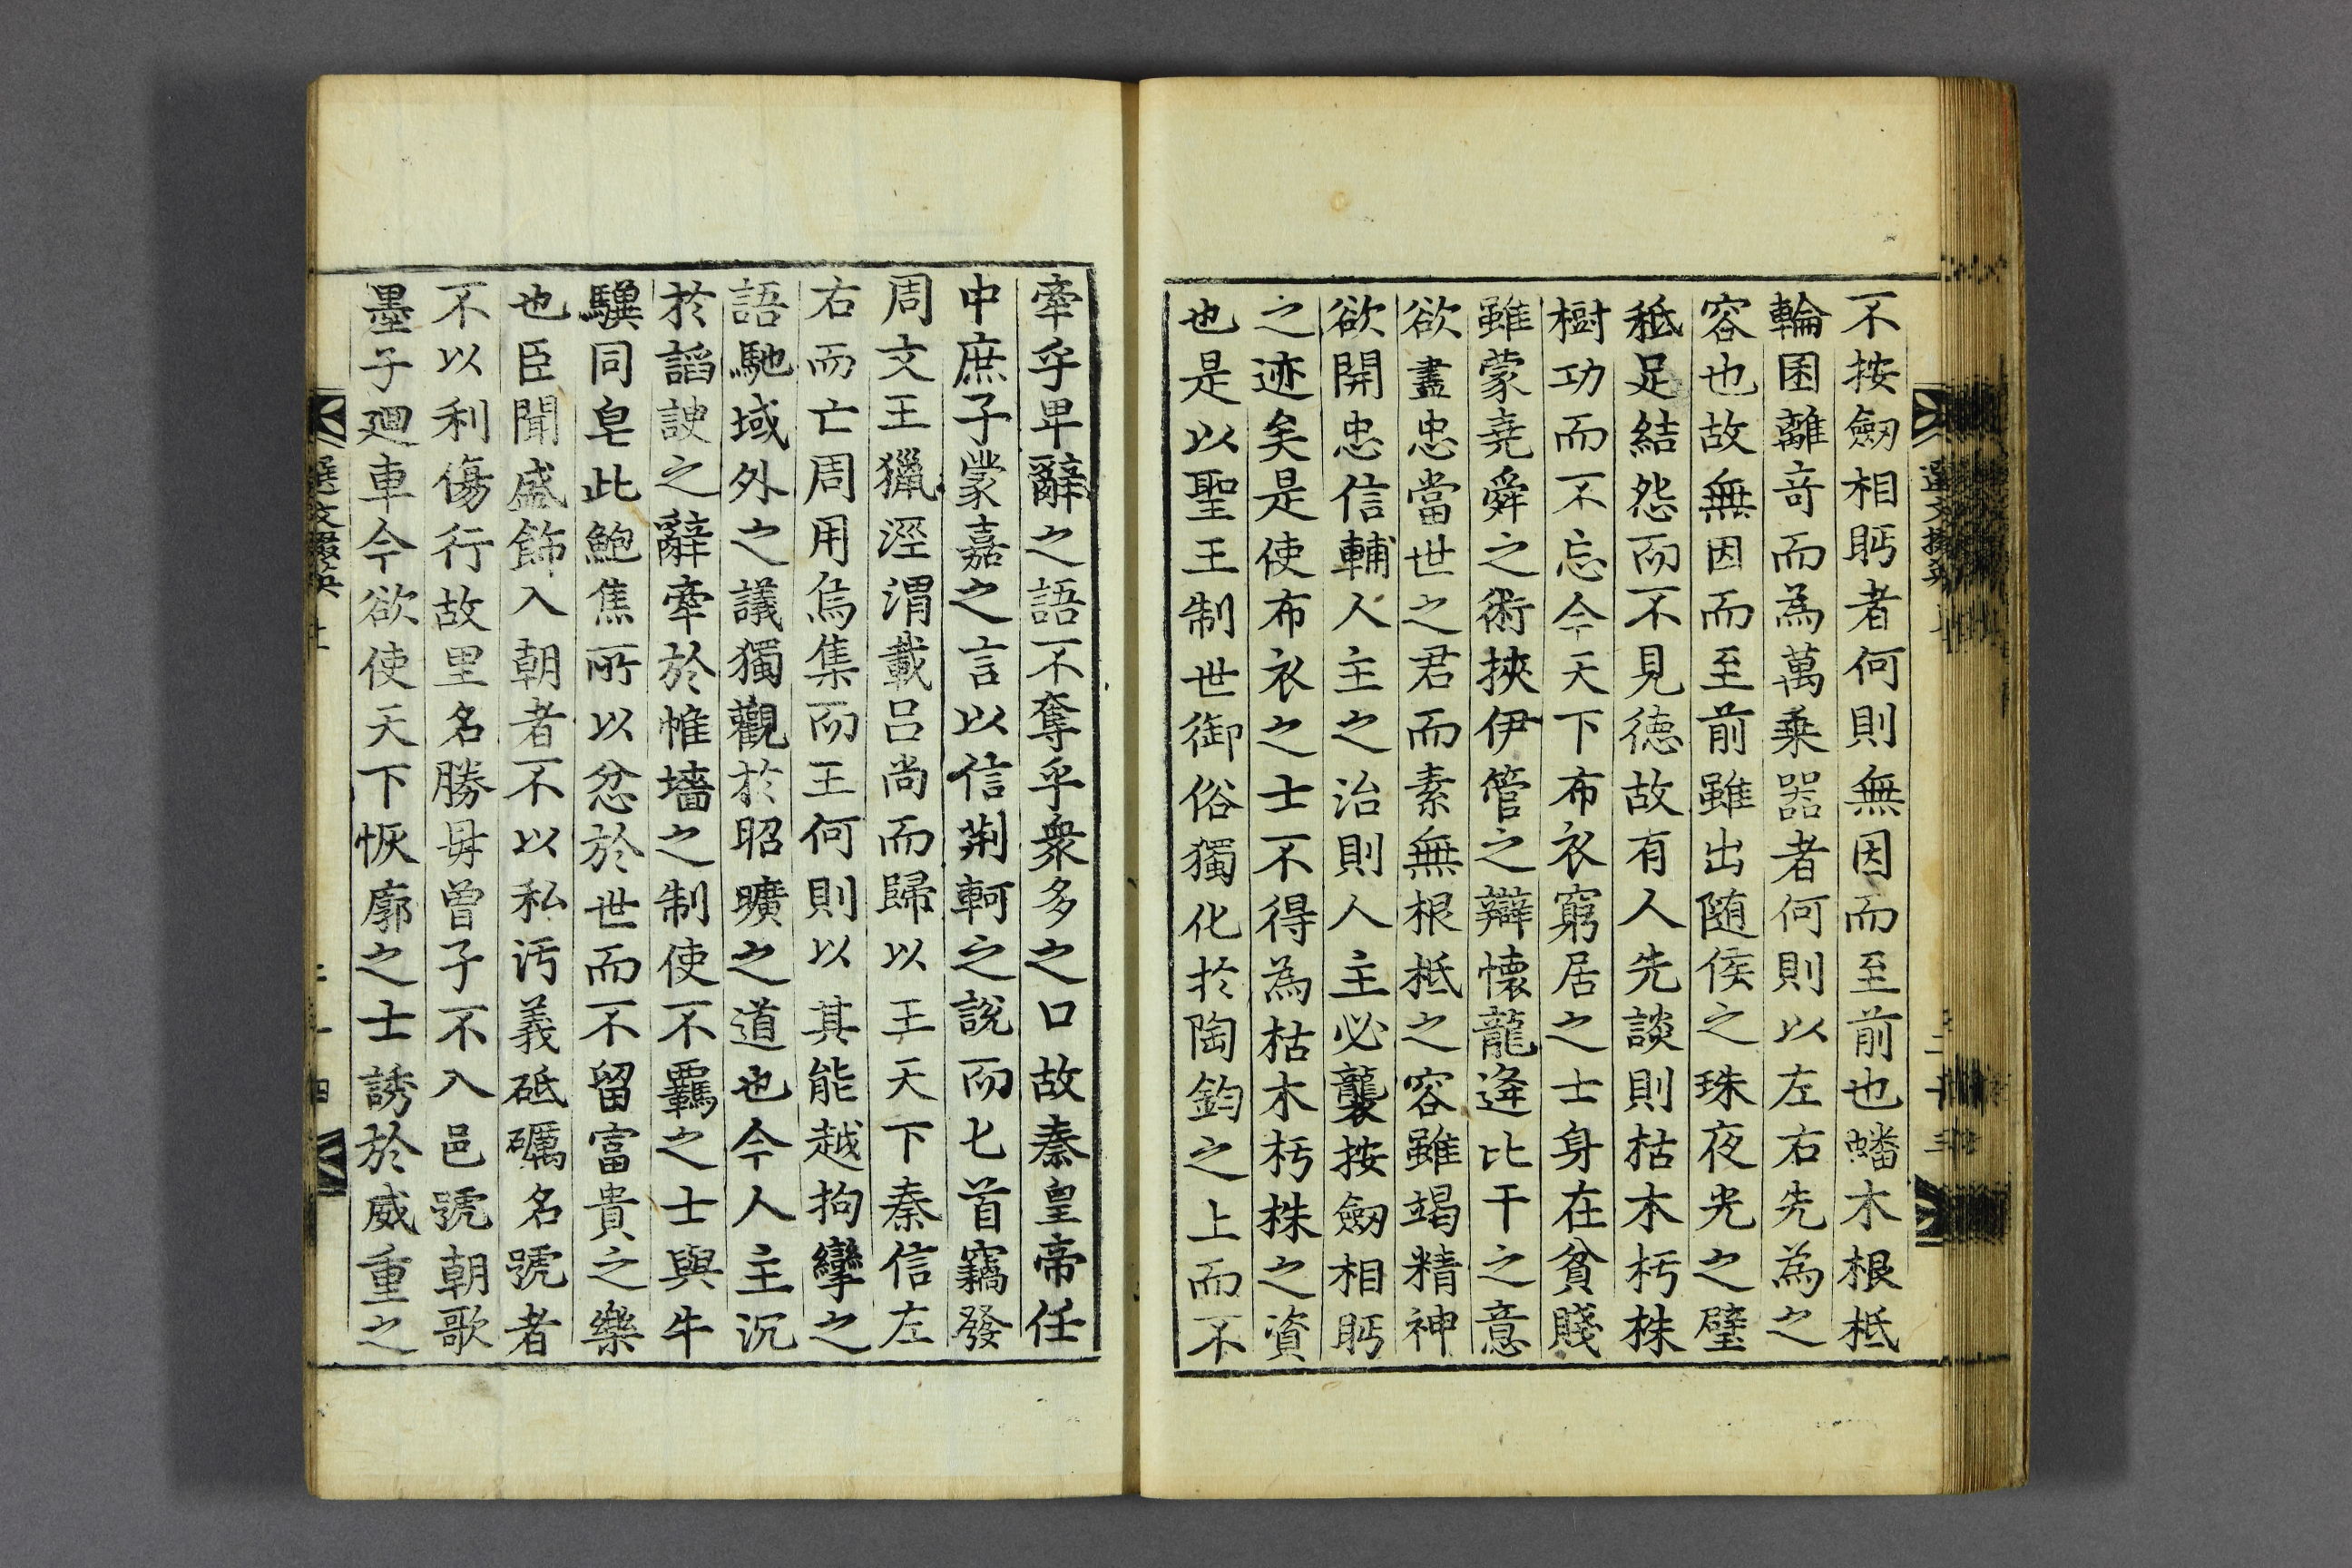 不按劒相眄者何則無因而至前也蟠木根柢
輪囷離奇而為萬乘器者何則以左右先為之
容也故無因而至前雖出随侯之珠夜光之璧
秪足結怨而不見德故有人先談則枯木朽株
樹功而不忘今天下布衣窮居之士身在貧賤
雖蒙堯舜之術挾伊管之辯懷龍逄比干之意
欲盡忠當世之君而素無根柢之容雖竭精神
欲開忠信輔人主之治則人主必襲按劒相眄
之迹矣是使布衣之士不得為枯木朽株之資
也是以聖王制世御俗獨化於陶鈞之上而不
牽乎卑辭之語不奪乎衆多之口故秦皇帝任
中庶子蒙嘉之言以信荆軻之說而匕首竊發
周文王獵涇渭載呂尚而歸以王天下秦信左
右而亡周用烏集而王何則以其能越拘攣之
語馳域外之議獨觀於昭曠之道也今人主沉
於諂諛之辭牽於帷墻之制使不羈之士與牛
驥同皂此鮑焦所以忿於世而不留富貴之樂
也臣聞盛飾入朝者不以私汚義砥礪名號者
不以利傷行故里名勝毋曾子不入邑號朝歌
墨子廻車今欲使天下恢廓之士誘於威重之